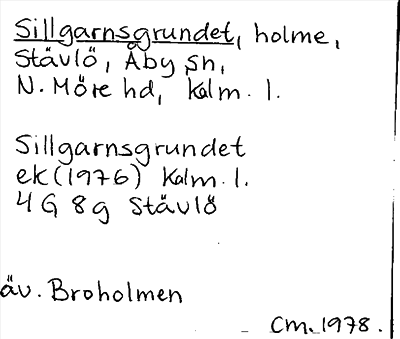 Sillgarnsgrundet, holme,
Stävlö, Åby sn,
N. Möre hd, Kalm. l.
Sillgarnsgrundet
ek (1976) Kalm. l.
4 G 8 g Stävlö
äv. Broholmen
Cm. 1978.